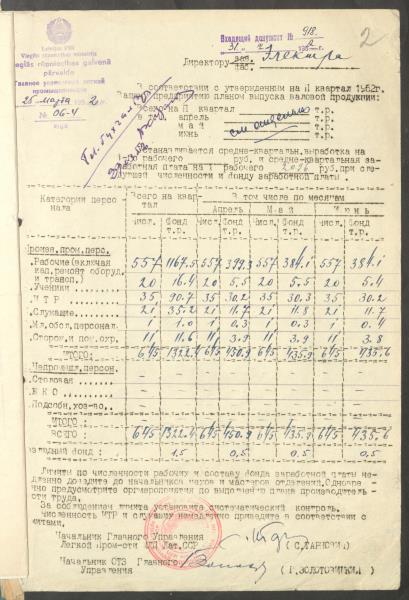 Latvijas PSR
Vieglās rūpniecības ministrija
Vieglās rūpniecības galvenā
pārvalde
Главное управление легкой
промышленности
25 марта 1952 г.
№ 06-4
Rīgā
Входящий документ № 918
2
Директору
Гл. бухгалтеру
В соответствии с утвержденным на II квартал 1952г.
Вашему предприятию планом выпуска валовой продукции:
Всего на II квартал т.р.
в т.ч. апрель т.р.
май т.р.
июнь т.р.
Устанавливается средне-квартальн. выработка на
1 рабочего руб. и средне-квартальная за-
работная плата на 1 рабочего 2096 руб. при сле-
дующей численности и фонду заработной платы.
Категории персо- Всего на квар- В том числе по месяцам
нала тал Апрель Май Июнь
Числ. Фонд Числ. Фонд Числ. Фонд Числ. Фонд
т.р. т.р. т.р. т.р.
Промыш. пром. перс.
Рабочие (включая 557 1167.5 557 399.3 557 384.1 557 384.1
кап. ремонт оборуд.
и трансп.)
Ученики 20 16.4 20 5.5 20 5.5 20 5.4
ИТР 35 90.7 35 30.2 35 30.3 35 30.2
Служащие 21 35.2 21 11.7 21 11.8 21 11.7
Мл. обсл. персонал. 1 1.0 1 0.3 1 0.3 1 0.4
Сторож. и пож. охр. 11 11.6 11 3.9 11 3.9 11 3.8
ИТОГО: 645 1322.4 645 450.9 645 435.9 645 435.6
Непромышл. персон.
Столовая - - - - - - - -
ЖКО - - - - - - - -
Подсобн. хоз-во - - - - - - - -
ИТОГО: - - - - - - - -
ВСЕГО: 645 1322.4 645 450.9 645 435.9 645 435.6
фонд: 1.5 0.5 0.5 0.5
Лимиты по численности рабочих и составу фонда заработной платы не-
медленно доведите до начальников цехов и мастеров отделений. Одновре-
менно предусмотрите оргмероприятия по выполнению плана производитель-
ности труда.
За соблюдением лимита установите систематический контроль.
Численность ИТР и служащих немедленно приведите в соответствии с
лимитами.
Начальник Главного Управления
Легкой Пром-сти МЛП Лат.ССР
Начальник ОТЗ Главного
Управления